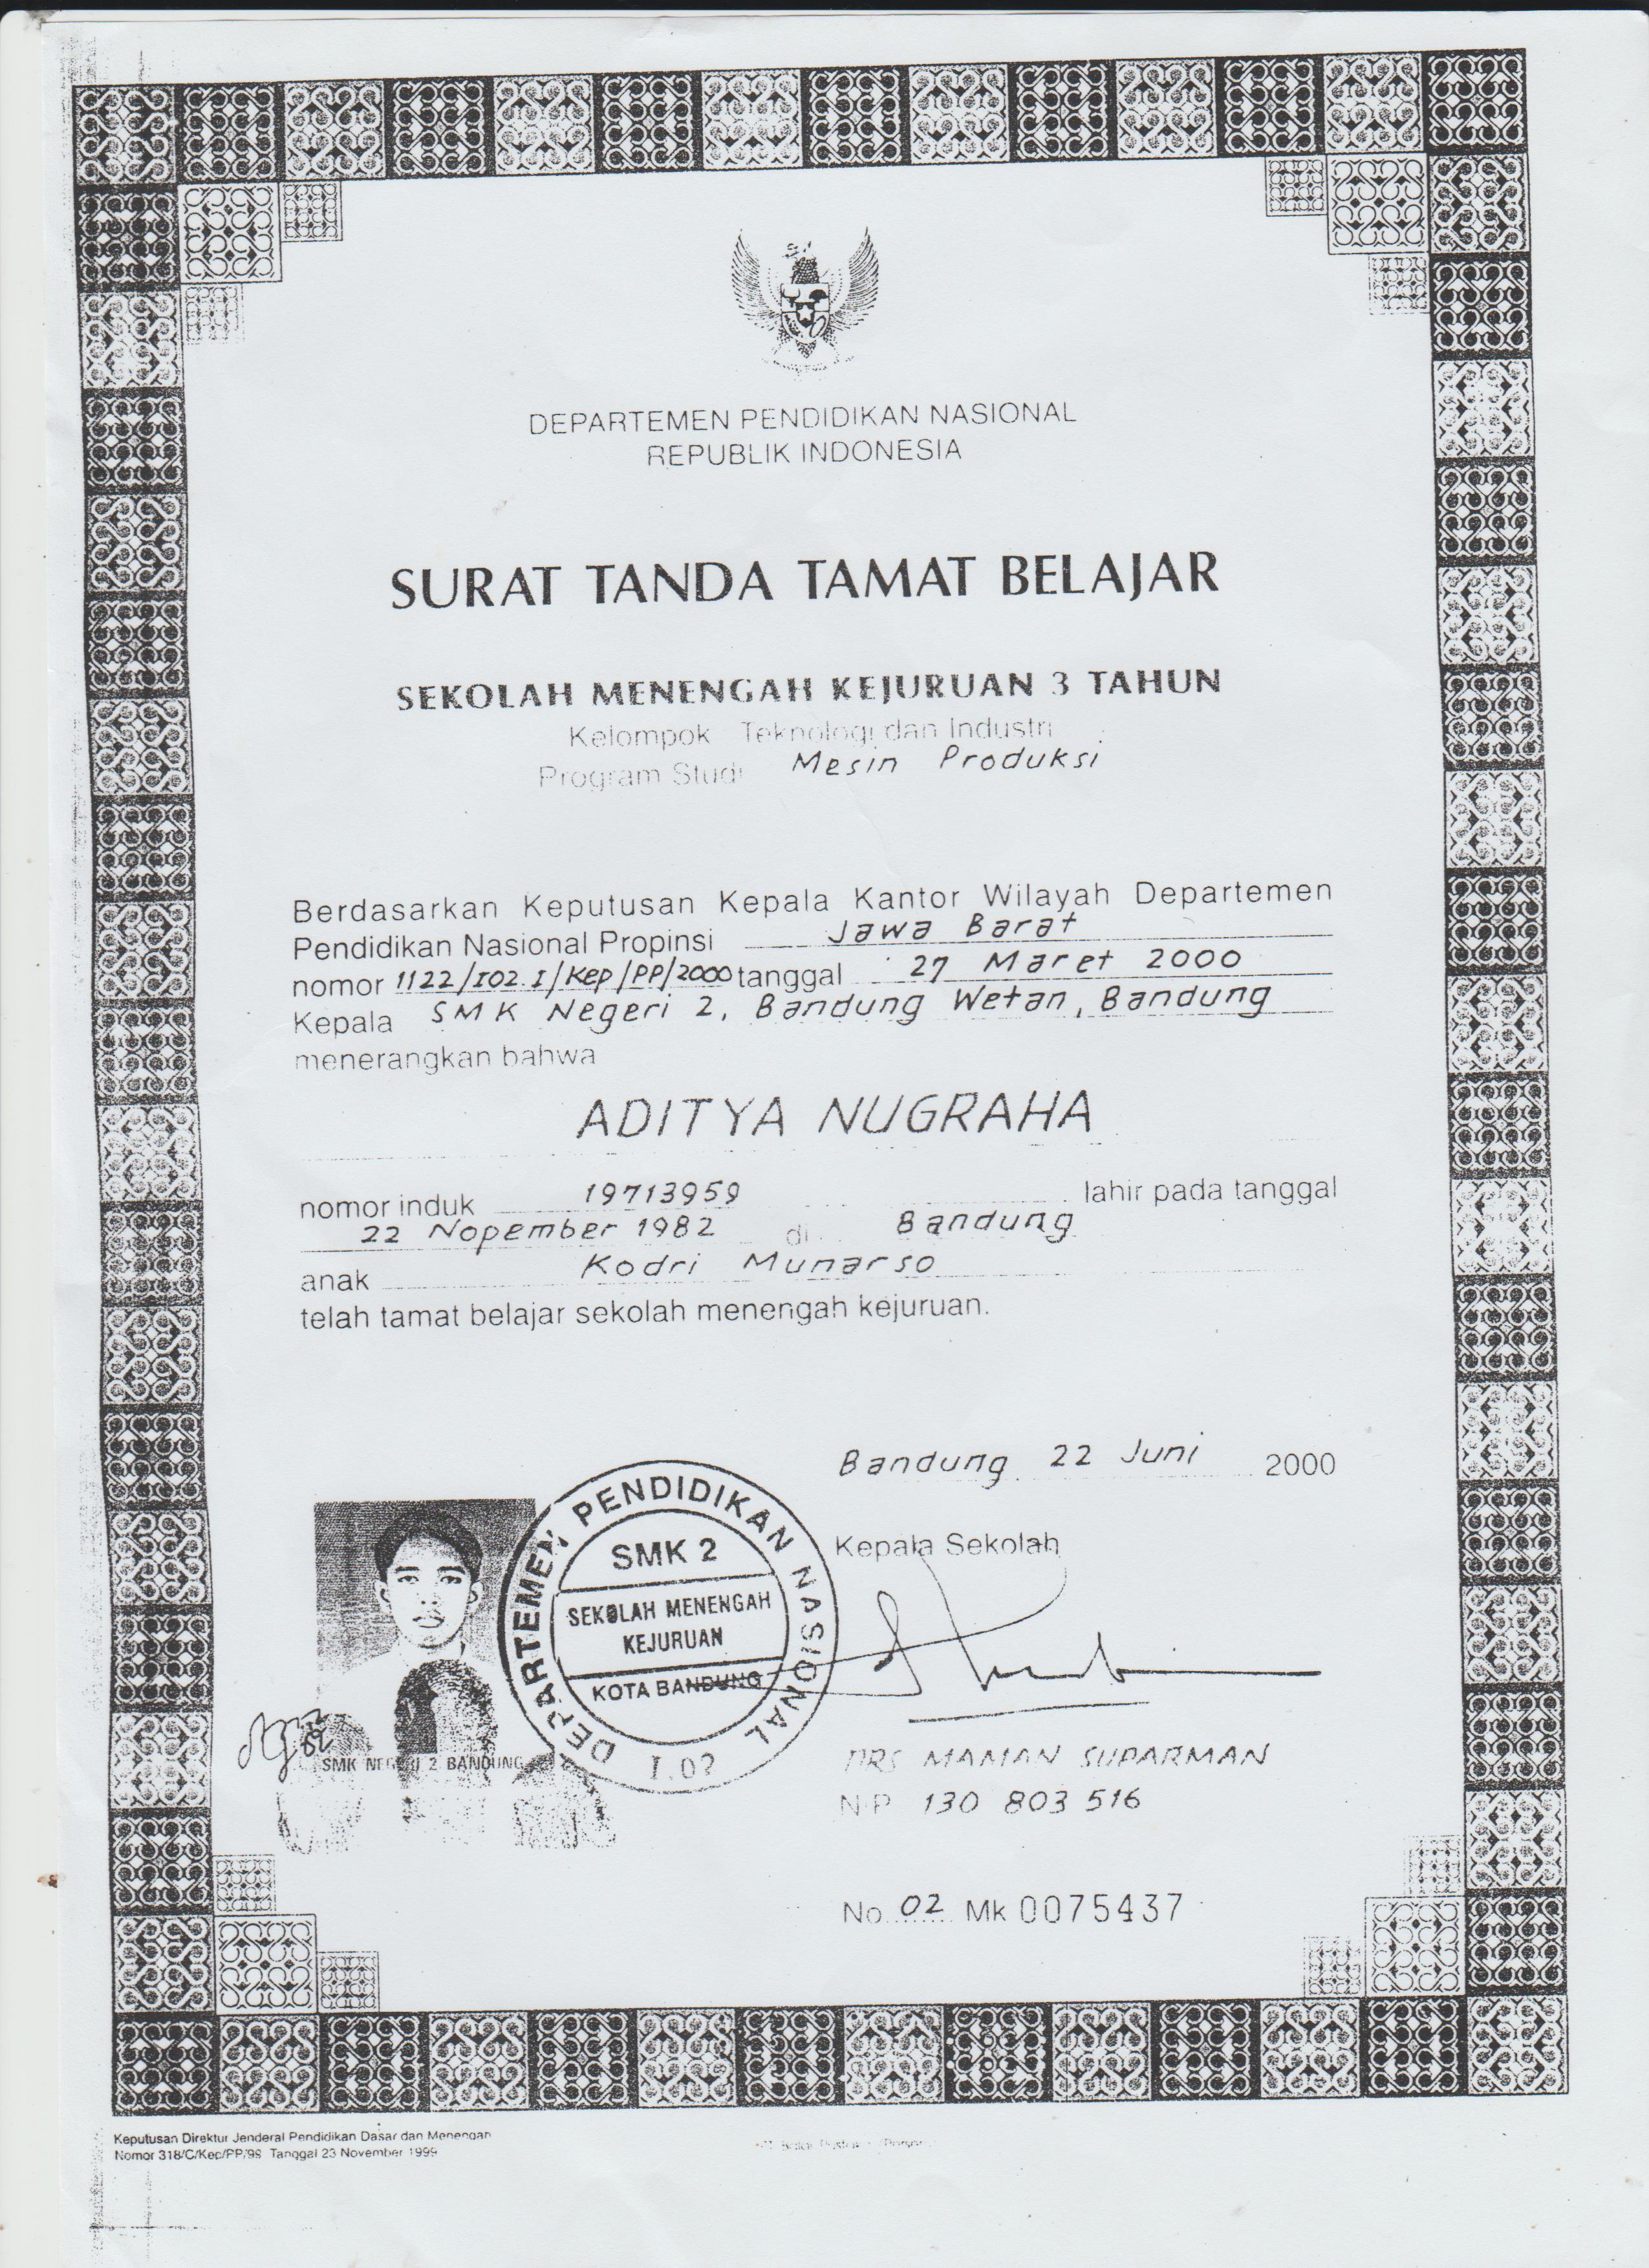 DEPARTEMEN PENDIDIKAN NASIONAL
REPUBLIK INDONESIA
SURAT TANDA TAMAT BELAJAR
SEKOLAH MENENGAH KEJURUAN 3 TAHUN
Kelompok Teknologi dan Industri
Program Studi Mesin Produksi
Berdasarkan Keputusan Kepala Kantor Wilayah Departemen
Pendidikan Nasional Propinsi Jawa Barat
nomor 1122/I02.I/Kep/PP/2000 tanggal 27 Maret 2000
Kepala SMK Negeri 2, Bandung Wetan, Bandung
menerangkan bahwa
ADITYA NUGRAHA
nomor induk 19713959 lahir pada tanggal
22 Nopember 1982 di Bandung
anak Kodri Munarso
telah tamat belajar sekolah menengah kejuruan.
Bandung 22 Juni 2000
Kepala Sekolah
DEPARTEMEN PENDIDIKAN NASIONAL
SMK 2
SEKOLAH MENENGAH
KEJURUAN
KOTA BANDUNG
I.02
SMK NEGERI 2 BANDUNG
DRS MAMAN SUPARMAN
NIP 130 803 516
No. 02 Mk 0075437
Keputusan Direktur Jenderal Pendidikan Dasar dan Menengah
Nomor 318/C/Kep/PP/99 Tanggal 23 November 1999